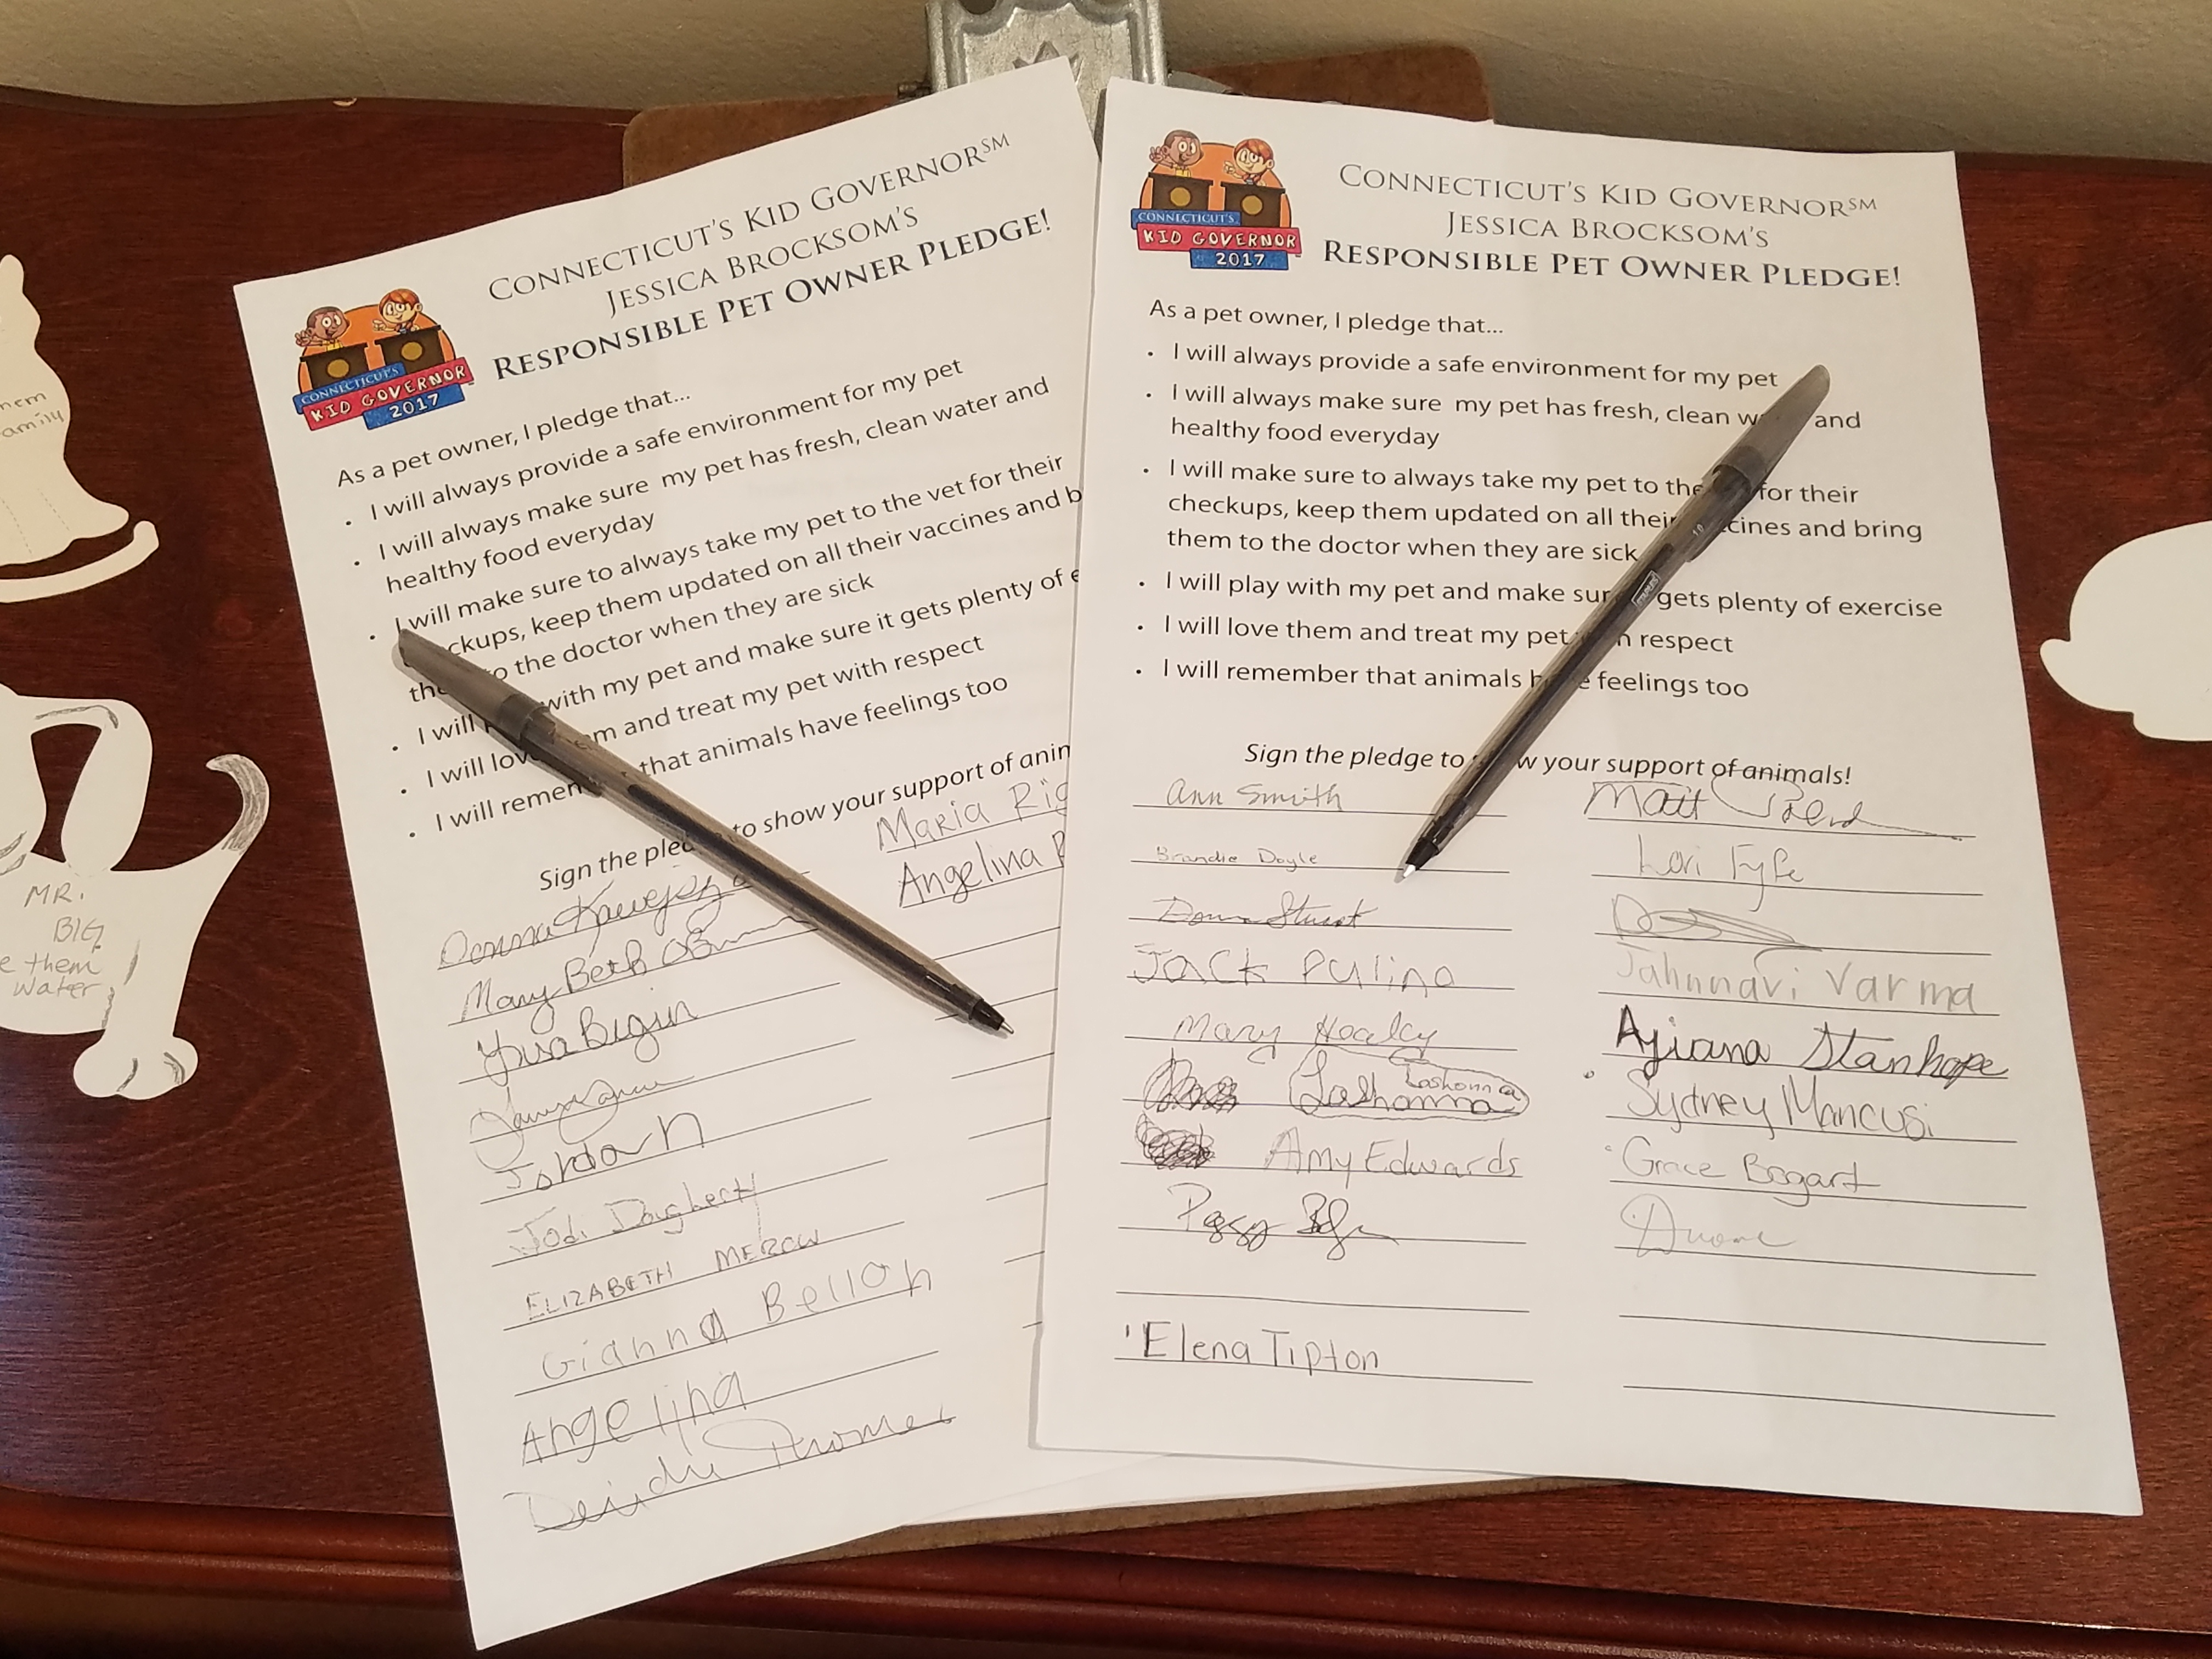 CONNECTICUT'S KID GOVERNOR℠
JESSICA BROCKSOM'S
RESPONSIBLE PET OWNER PLEDGE!
CONNECTICUT'S
KID GOVERNOR
2017
As a pet owner, I pledge that...
• I will always provide a safe environment for my pet
• I will always make sure my pet has fresh, clean water and
healthy food everyday
• I will make sure to always take my pet to the vet for their
ckups, keep them updated on all their vaccines and b
the o the doctor when they are sick
• I will with my pet and make sure it gets plenty of e
• I will love em and treat my pet with respect
• I will remem that animals have feelings too
Sign the pled to show your support of anim
Donna
Mary Beth
Bigin
Jordan
Jodi Dougherty
ELIZABETH MEROW
Gianna Bellon
Angelina
Maria Rig
Angelina
CONNECTICUT'S KID GOVERNOR℠
JESSICA BROCKSOM'S
RESPONSIBLE PET OWNER PLEDGE!
CONNECTICUT'S
KID GOVERNOR
2017
As a pet owner, I pledge that...
• I will always provide a safe environment for my pet
• I will always make sure my pet has fresh, clean w and
healthy food everyday
• I will make sure to always take my pet to the for their
checkups, keep them updated on all their cines and bring
them to the doctor when they are sick
• I will play with my pet and make sur gets plenty of exercise
• I will love them and treat my pet h respect
• I will remember that animals h e feelings too
Sign the pledge to w your support of animals!
Ann Smith
Brandie Doyle
Stuart
Jack Pulino
Mary Healey
Lashonna
Lashonna
Amy Edwards
Peggy
Elena Tipton
Matt
Lori Fyfe
Jahnnavi Varma
Ajiana Stanhope
Sydney Mancusi
Grace Bogart
Duane
hem
family
MR.
BIG
e them
water